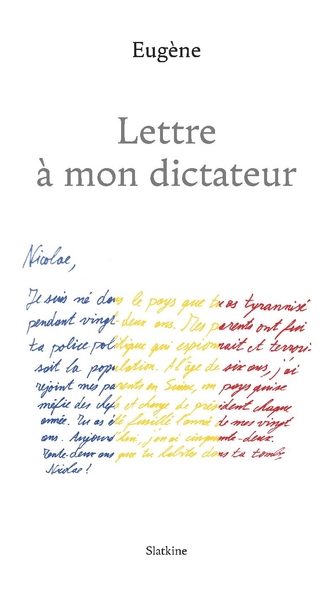 Eugène
Lettre
à mon dictateur
Nicolae,
Je suis né dans le pays que tu as tyrannisé
pendant vingt-deux ans. Mes parents ont fui
ta police politique qui espionnait et terrori-
sait la population. A l'âge de six ans, j'ai
rejoint mes parents en Suisse, un pays qui se
méfie des chefs et change de président chaque
année. Tu as été fusillé l'année de mes vingt
ans. Aujourd'hui, j'en ai cinquante-deux.
Trente-deux ans que tu habites dans ta tombe
Nicolae !
Slatkine